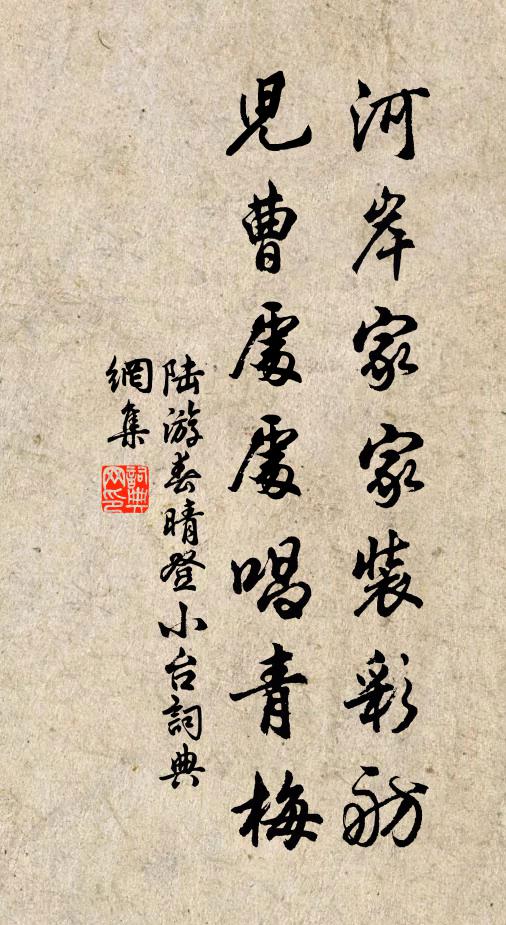 河岸家家裝彩舫
兒曹處處唱青梅
陆游春晴登小台詞典
網集
詞典網印